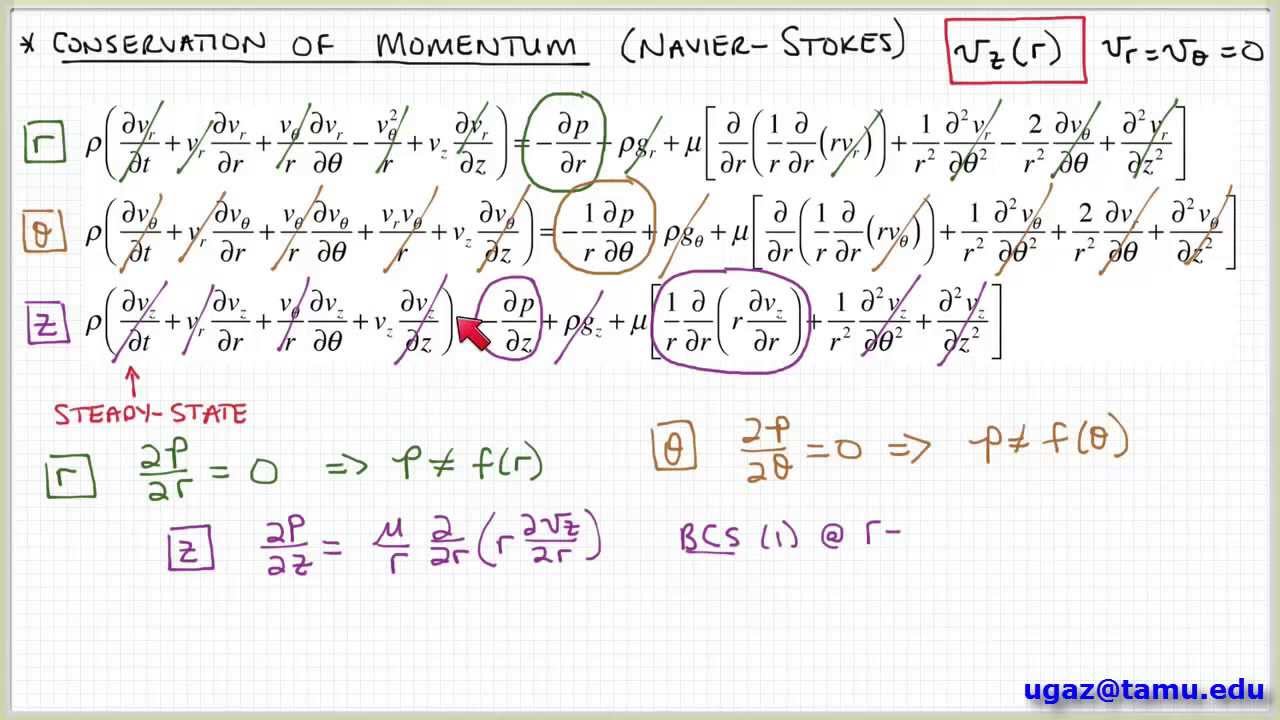 * CONSERVATION OF MOMENTUM (NAVIER-STOKES) v_z(r) v_r = v_θ = 0
r ρ(∂v_r/∂t + v_r ∂v_r/∂r + v_θ/r ∂v_r/∂θ − v_θ²/r + v_z ∂v_r/∂z) = −∂p/∂r + ρg_r + μ[∂/∂r(1/r ∂/∂r(rv_r)) + 1/r² ∂²v_r/∂θ² − 2/r² ∂v_θ/∂θ + ∂²v_r/∂z²]
θ ρ(∂v_θ/∂t + v_r ∂v_θ/∂r + v_θ/r ∂v_θ/∂θ + v_r v_θ/r + v_z ∂v_θ/∂z) = −1/r ∂p/∂θ + ρg_θ + μ[∂/∂r(1/r ∂/∂r(rv_θ)) + 1/r² ∂²v_θ/∂θ² + 2/r² ∂v_r/∂θ + ∂²v_θ/∂z²]
z ρ(∂v_z/∂t + v_r ∂v_z/∂r + v_θ/r ∂v_z/∂θ + v_z ∂v_z/∂z) − ∂p/∂z + ρg_z + μ[1/r ∂/∂r(r ∂v_z/∂r) + 1/r² ∂²v_z/∂θ² + ∂²v_z/∂z²]
STEADY-STATE
r ∂P/∂r = 0 => P ≠ f(r)
θ ∂P/∂θ = 0 => P ≠ f(θ)
z ∂P/∂z = μ/r ∂/∂r (r ∂v_z/∂r) BCS (1) @ r-
ugaz@tamu.edu